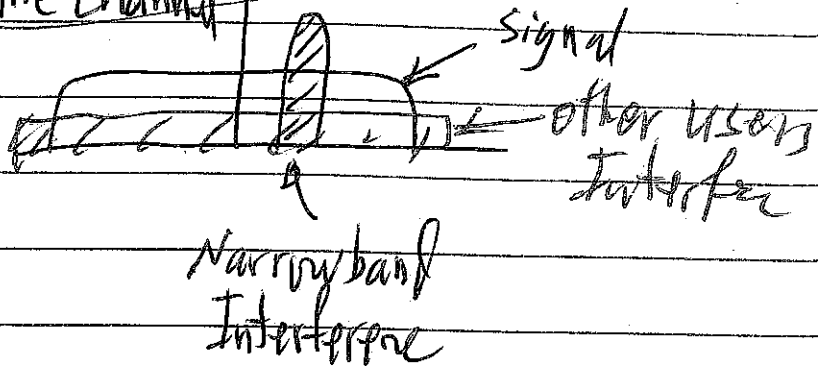 the channel
signal
other users
Interfrec
Narrowband
Interference